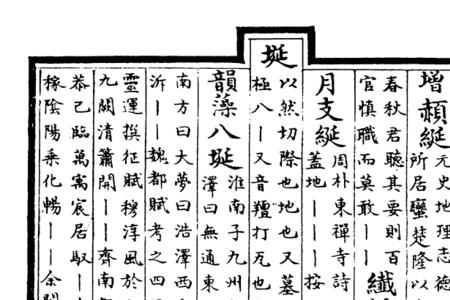 增頳綖
元史地理志德
所居蠻楚隆以
春秋君聽其要則百
官慎職而莫敢丨丨
纖
月支綖
周朴東禪寺詩
蓋地丨丨丨按
埏
以然切際也地也又墓
極八丨丨又音羶打瓦也
韻藻八埏
淮南子九州
澤曰無通東
南方曰大夢曰浩澤西
泝丨丨魏都賦考之四
靈運撰征賦穆淳風於
九關清簫開丨丨齊南
恭己臨萬寓宸居馭丨
陰陽乘化暢丨丨余